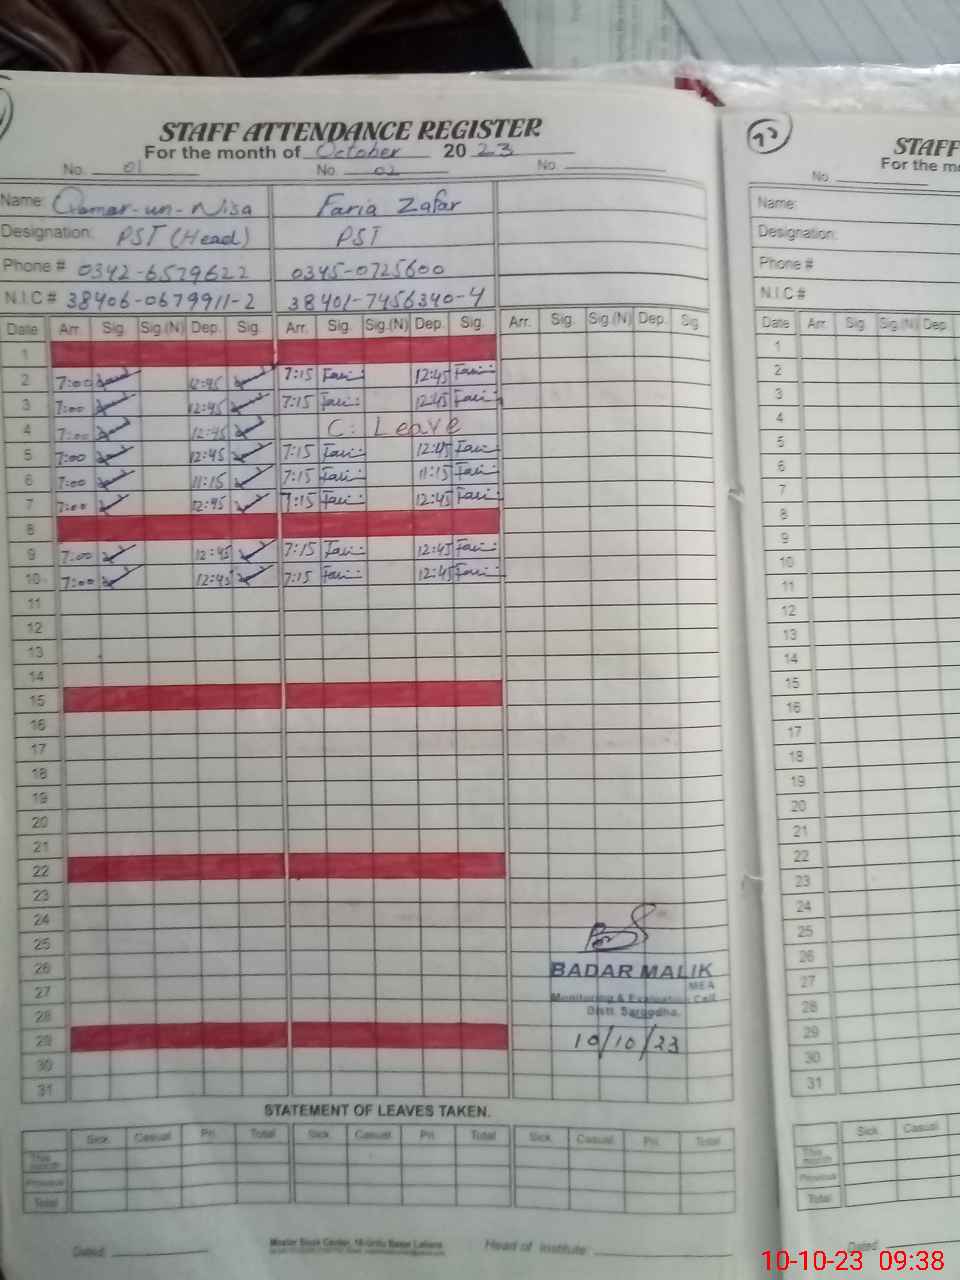 STAFF ATTENDANCE REGISTER
For the month of October 2023
No. 01 No. 02 No.
Name: Qamar-un-Nisa Faria Zafar
Designation: PST (Head) PST
Phone # 0342-6579622 0345-0725600
N.I.C # 38406-0679911-2 38401-7456340-4
Date Arr. Sig. Sig.(N) Dep. Sig. Arr. Sig. Sig.(N) Dep. Sig. Arr. Sig. Sig.(N) Dep. Sig
1
2 7:00 12:45 7:15 Fari 12:45 Fari
3 7:00 12:45 7:15 Fari 12:45 Fari
4 7:00 12:45 C: Leave
5 7:00 12:45 7:15 Fari 12:45 Fari
6 7:00 11:15 7:15 Fari 11:15 Fari
7 7:00 12:45 7:15 Fari 12:45 Fari
8
9 7:00 12:45 7:15 Fari 12:45 Fari
10 7:00 12:45 7:15 Fari 12:45 Fari
11
12
13
14
15
16
17
18
19
20
21
22
23
24
25
26
27
28
29
30
31
BADAR MALIK
MEA
Monitoring & Evaluation Cell
Distt. Sargodha.
10/10/23
STATEMENT OF LEAVES TAKEN.
Sick Casual Pri. Total Sick. Casual Pri. Total Sick. Casual Pri. Total
This month
Previous
Total
Dated Head of Institute
STAFF
For the m
No
Name:
Designation:
Phone #
N.I.C #
Date Arr. Sig Sig.(N) Dep
1
2
3
4
5
6
7
8
9
10
11
12
13
14
15
16
17
18
19
20
21
22
23
24
25
26
27
28
29
30
31
Sick Casual
This month
Previous
Total
Dated
10-10-23 09:38